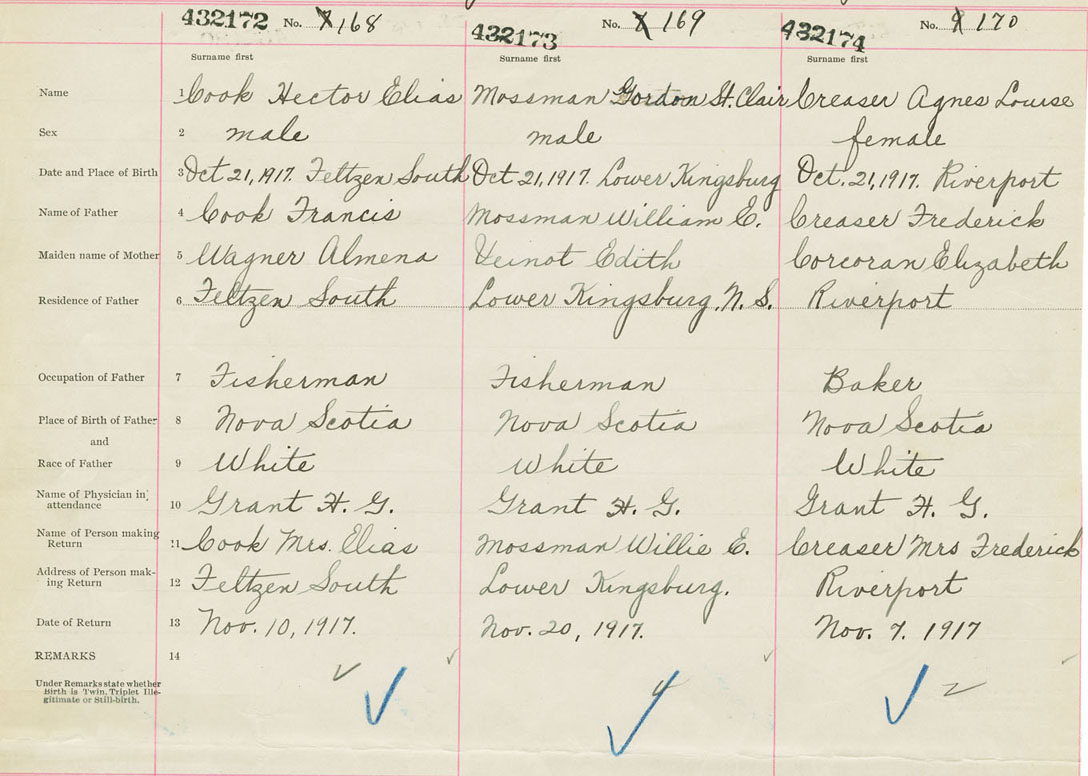 432172 No. 168
432173 No. 169
432174 No. 170
Surname first Surname first Surname first
Name 1 Cook Hector Elias Mossman Gordon St. Clair Creaser Agnes Louise
Sex 2 male male female
Date and Place of Birth 3 Oct 21, 1917. Feltzen South Oct 21, 1917. Lower Kingsburg Oct. 21, 1917. Riverport
Name of Father 4 Cook Francis Mossman William E. Creaser Frederick
Maiden name of Mother 5 Wagner Almena Veinot Edith Corcoran Elizabeth
Residence of Father 6 Feltzen South Lower Kingsburg, N. S. Riverport
Occupation of Father 7 Fisherman Fisherman Baker
Place of Birth of Father 8 Nova Scotia Nova Scotia Nova Scotia
and
Race of Father 9 White White White
Name of Physician in
attendance 10 Grant H. G. Grant H. G. Grant H. G.
Name of Person making
Return 11 Cook Mrs. Elias Mossman Willie E. Creaser Mrs Frederick
Address of Person mak-
ing Return 12 Feltzen South Lower Kingsburg. Riverport
Date of Return 13 Nov. 10, 1917. Nov. 20, 1917. Nov. 7. 1917
REMARKS 14
Under Remarks state whether
Birth is Twin, Triplet Ille-
gitimate or Still-birth.